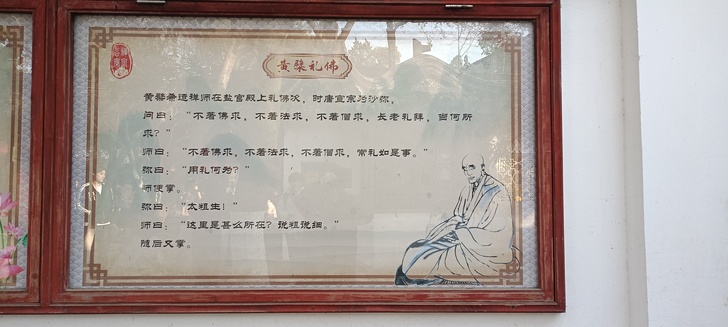 黄檗礼佛
黄檗希运禅师在盐官殿上礼佛次，时唐宣宗为沙弥，
问曰：“不着佛求，不着法求，不着僧求，长老礼拜，当何所
求？”
师曰：“不着佛求，不着法求，不着僧求，常礼如是事。”
弥曰：“用礼何为？”
师便掌。
弥曰：“太粗生！”
师曰：“这里是甚么所在？说粗说细。”
随后又掌。